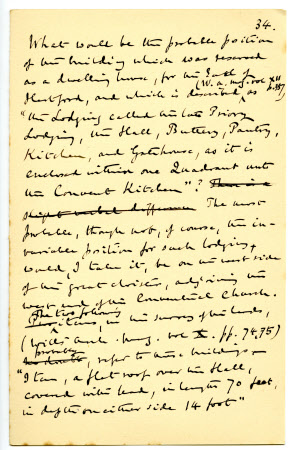 34.
What would be the probable position
of the building which was reserved
as a dwelling house, for the Earl of
Hertford, and which is described as (W. A. Mag. vol XII
"the Lodging called the late Priory
Lodging, the Hall, Buttery, Pantry,
Kitchen, and Gatehouse, as it is
enclosed within one Quadrant unto
the Convent Kitchen"? There is a
slight verbal difference The most
probable, though not, of course, the in-
variable position for such lodging,
would, I take it, be on the west side
of the great cloister, adjoining the
west end of the Conventual Church.
The two following
items, in the survey of the leads,
(Wilts Arch. Mag. vol X. pp. 74, 75)
probably
no doubt, refer to these buildings—
"Item, a flat roof over the Hall,
covered with lead, in length 70 feet,
in depth on either side 14 foot"